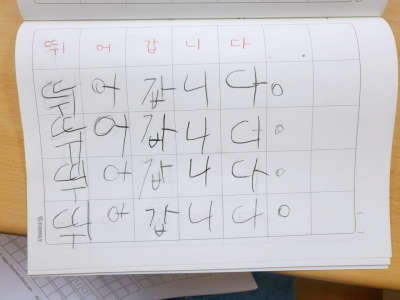 뛰어갑니다
뛰어갑니다.
뛰어갑니다.
뛰어갑니다.
뛰어갑니다.